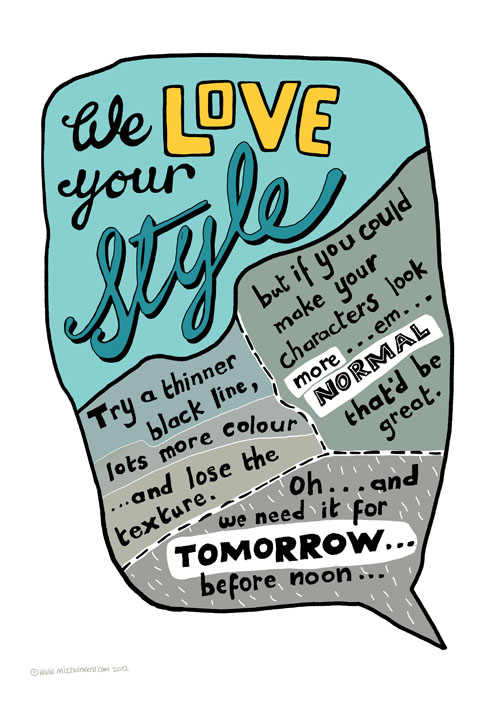 We LOVE
your
Style
but if you could
make your
characters look
more ...em...
NORMAL
that'd be
great.
Try a thinner
black line,
lots more colour
...and lose the
texture.
Oh...and
we need it for
TOMORROW...
before noon...